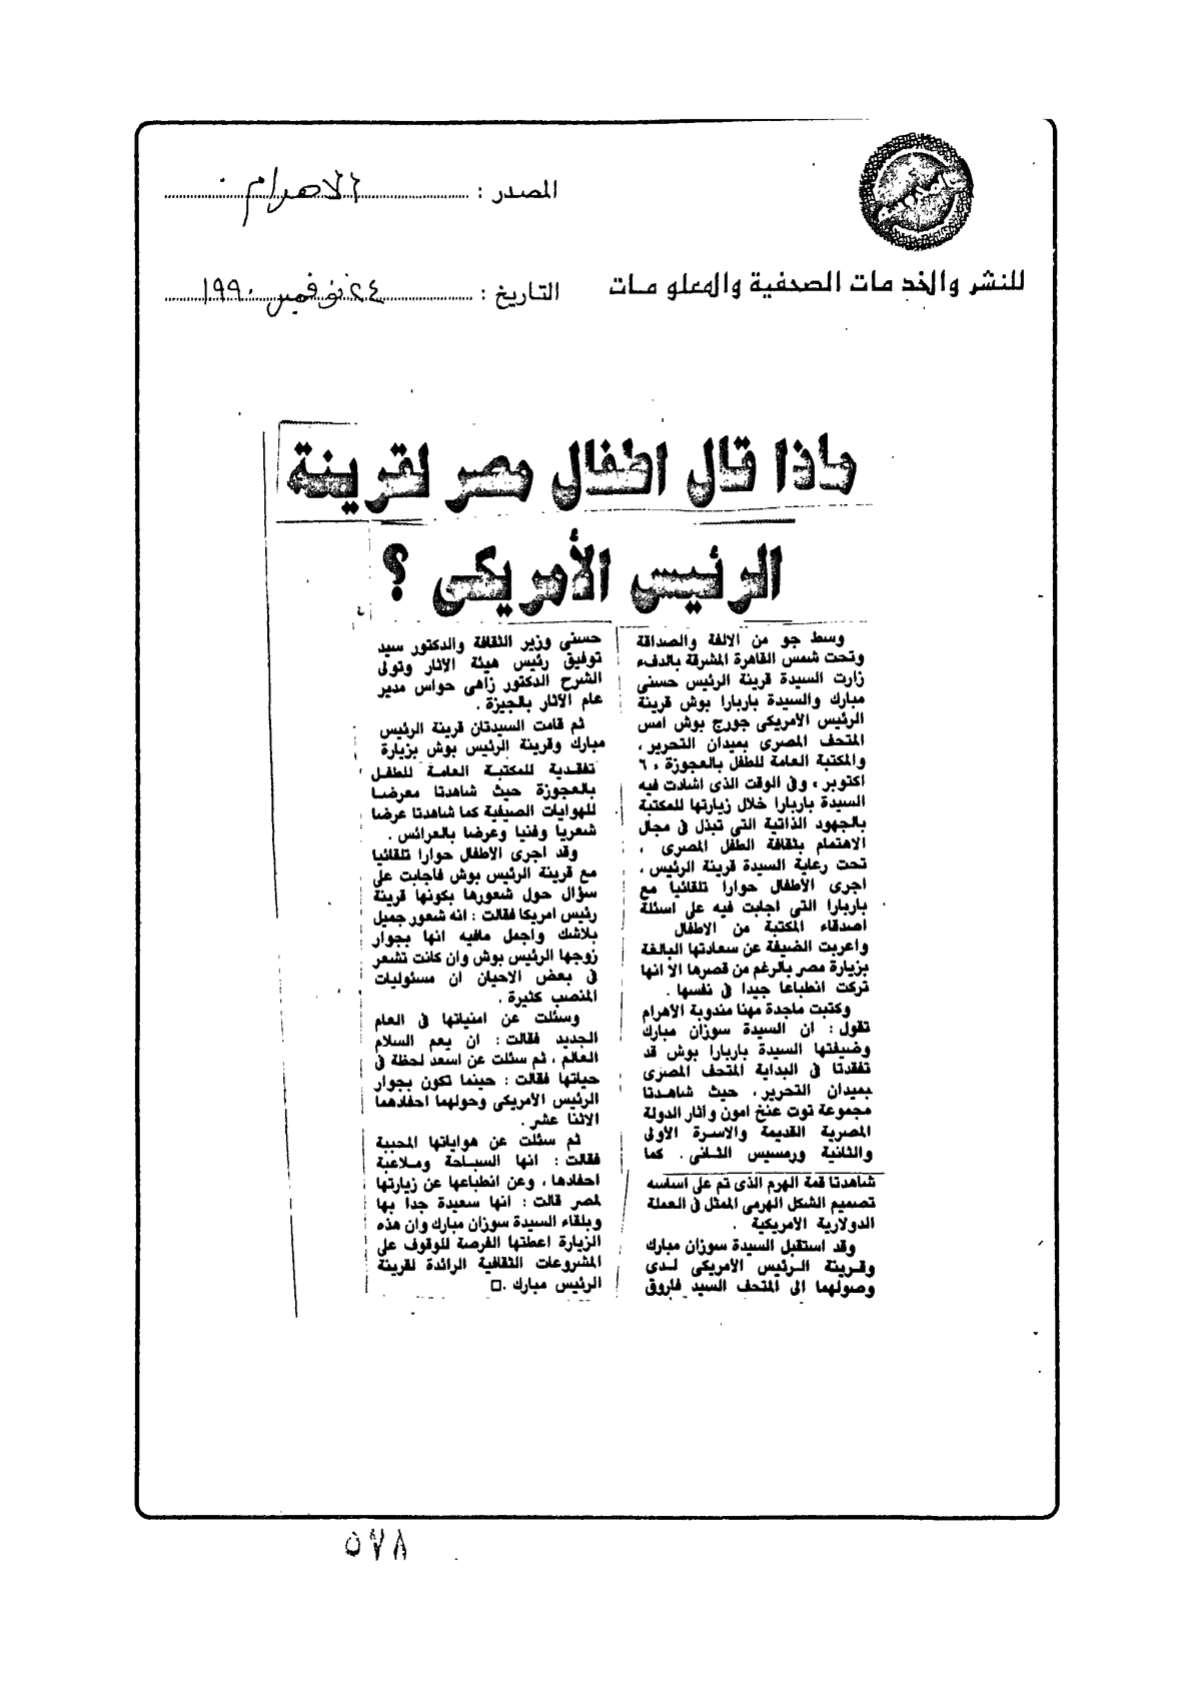 المصدر : الاهرام
للنشر والخدمات الصحفية والمعلومات
التاريخ : ٢٤ نوفمبر ١٩٩٠
ماذا قال اطفال مصر لقرينة
الرئيس الأمريكى ؟
وسط جو من الالفة والصداقة
وتحت شمس القاهرة المشرقة بالدفء
زارت السيدة قرينة الرئيس حسنى
مبارك والسيدة باربارا بوش قرينة
الرئيس الامريكى جورج بوش امس
المتحف المصرى بميدان التحرير ،
والمكتبة العامة للطفل بالعجوزة ، ٦
اكتوبر ، وفى الوقت الذى اشادت فيه
السيدة باربارا خلال زيارتها للمكتبة
بالجهود الذاتية التى تبذل فى مجال
الاهتمام بثقافة الطفل المصرى ،
تحت رعاية السيدة قرينة الرئيس ،
اجرى الأطفال حوارا تلقائيا مع
باربارا التى اجابت فيه على اسئلة
اصدقاء المكتبة من الاطفال
واعربت الضيفة عن سعادتها البالغة
بزيارة مصر بالرغم من قصرها الا انها
تركت انطباعا جيدا فى نفسها .
وكتبت ماجدة مهنا مندوبة الأهرام
تقول : ان السيدة سوزان مبارك
وضيفتها السيدة باربارا بوش قد
تفقدتا فى البداية المتحف المصرى
بميدان التحرير ، حيث شاهدتا
مجموعة توت عنخ امون واثار الدولة
المصرية القديمة والاسرة الأولى
والثانية ورمسيس الثانى . كما
شاهدتا قمة الهرم الذى تم على اساسه
تصميم الشكل الهرمى الممثل فى العملة
الدولارية الامريكية .
وقد استقبل السيدة سوزان مبارك
وقرينة الرئيس الامريكى لدى
وصولهما الى المتحف السيد فاروق
حسنى وزير الثقافة والدكتور سيد
توفيق رئيس هيئة الاثار وتولى
الشرح الدكتور زاهى حواس مدير
عام الآثار بالجيزة .
ثم قامت السيدتان قرينة الرئيس
مبارك وقرينة الرئيس بوش بزيارة
تفقدية للمكتبة العامة للطفل
بالعجوزة حيث شاهدتا معرضا
للهوايات الصيفية كما شاهدتا عرضا
شعريا وفنيا وعرضا بالعرائس .
وقد اجرى الأطفال حوارا تلقائيا
مع قرينة الرئيس بوش فاجابت على
سؤال حول شعورها بكونها قرينة
رئيس امريكا فقالت : انه شعور جميل
بلاشك واجمل مافيه انها بجوار
زوجها الرئيس بوش وان كانت تشعر
فى بعض الاحيان ان مسئوليات
المنصب كثيرة .
وسئلت عن امنياتها فى العام
الجديد فقالت : ان يعم السلام
العالم ، ثم سئلت عن اسعد لحظة فى
حياتها فقالت : حينما تكون بجوار
الرئيس الأمريكى وحولهما احفادهما
الاثنا عشر .
ثم سئلت عن هواياتها المحببة
فقالت : انها السباحة وملاعبة
احفادها ، وعن انطباعها عن زيارتها
لمصر قالت : انها سعيدة جدا بها
وبلقاء السيدة سوزان مبارك وان هذه
الزيارة اعطتها الفرصة للوقوف على
المشروعات الثقافية الرائدة لقرينة
الرئيس مبارك .□
٥٧٨